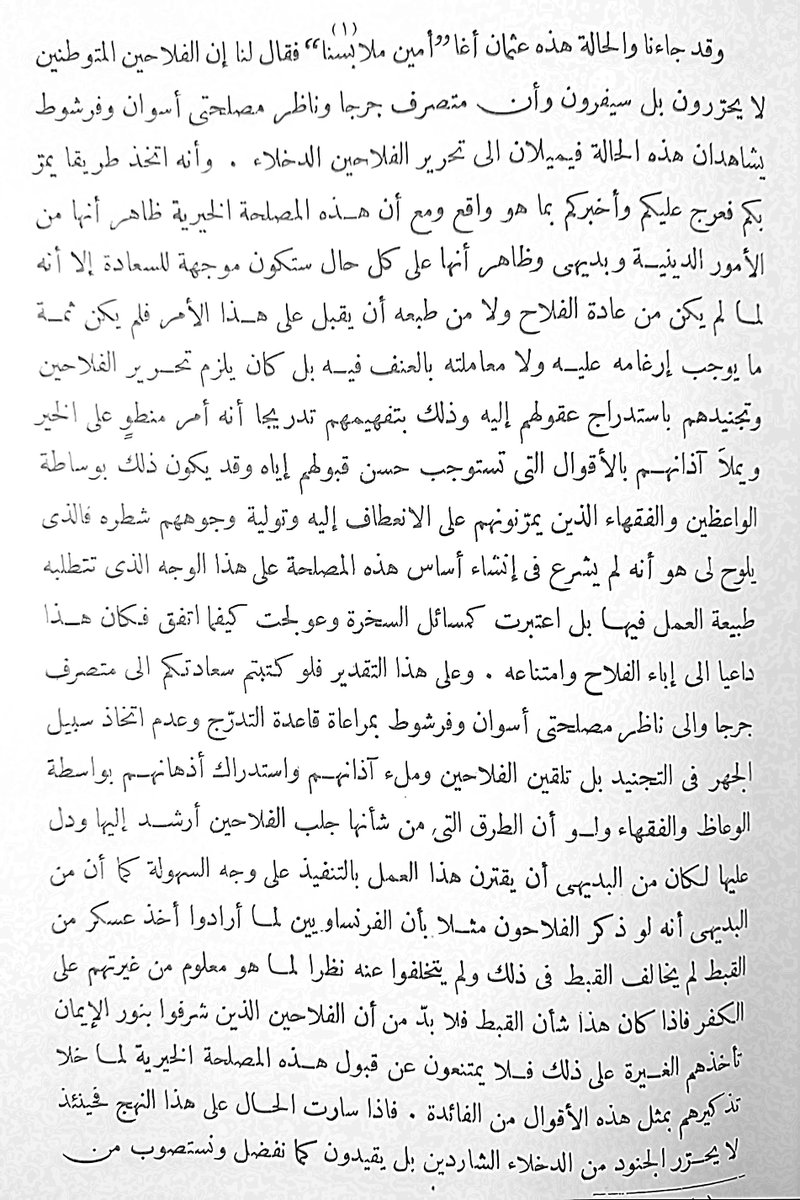 (١)
وقد جاءنا والحالة هذه عثمان أغا "أمين ملابسنا" فقال لنا إن الفلاحين المتوطنين
لا يحرّرون بل سيفرون وأن متصرف جرجا وناظر مصلحتى أسوان وفرشوط
يشاهدان هذه الحالة فيميلان الى تحرير الفلاحين الدخلاء . وأنه اتخذ طريقا يمرّ
بكم فعرج عليكم وأخبركم بما هو واقع ومع أن هذه المصلحة الخيرية ظاهر أنها من
الأمور الدينية وبديهى وظاهر أنها على كل حال ستكون موجهة للسعادة إلا أنه
لما لم يكن من عادة الفلاح ولا من طبعه أن يقبل على هذا الأمر فلم يكن ثمة
ما يوجب إرغامه عليه ولا معاملته بالعنف فيه بل كان يلزم تحرير الفلاحين
وتجنيدهم باستدراج عقولهم إليه وذلك بتفهيمهم تدريجا أنه أمر منطوٍ على الخير
ويملأ آذانهم بالأقوال التى تستوجب حسن قبولهم إياه وقد يكون ذلك بوساطة
الواعظين والفقهاء الذين يمرّنونهم على الانعطاف إليه وتولية وجوههم شطره فالذى
يلوح لى هو أنه لم يشرع فى إنشاء أساس هذه المصلحة على هذا الوجه الذى تتطلبه
طبيعة العمل فيها بل اعتبرت كمسائل السخرة وعولجت كيفما اتفق فكان هذا
داعيا الى إباء الفلاح وامتناعه . وعلى هذا التقدير فلو كتبتم سعادتكم الى متصرف
جرجا والى ناظر مصلحتى أسوان وفرشوط بمراعاة قاعدة التدرّج وعدم اتخاذ سبيل
الجهر فى التجنيد بل تلقين الفلاحين وملء آذانهم واستدراك أذهانهم بواسطة
الوعاظ والفقهاء ولو أن الطرق التى من شأنها جلب الفلاحين أرشد إليها ودل
عليها لكان من البديهى أن يقترن هذا العمل بالتنفيذ على وجه السهولة كما أن من
البديهى أنه لو ذكر الفلاحون مثلا بأن الفرنساويين لما أرادوا أخذ عسكر من
القبط لم يخالف القبط فى ذلك ولم يتخلفوا عنه نظرا لما هو معلوم من غيرتهم على
الكفر فاذا كان هذا شأن القبط فلا بدّ من أن الفلاحين الذين شرفوا بنور الإيمان
تأخذهم الغيرة على ذلك فلا يمتنعون عن قبول هذه المصلحة الخيرية لما خلا
تذكيرهم بمثل هذه الأقوال من الفائدة . فاذا سارت الحال على هذا النهج فحينئذ
لا يحرّر الجنود من الدخلاء الشاردين بل يقيدون كما نفضل ونستصوب من